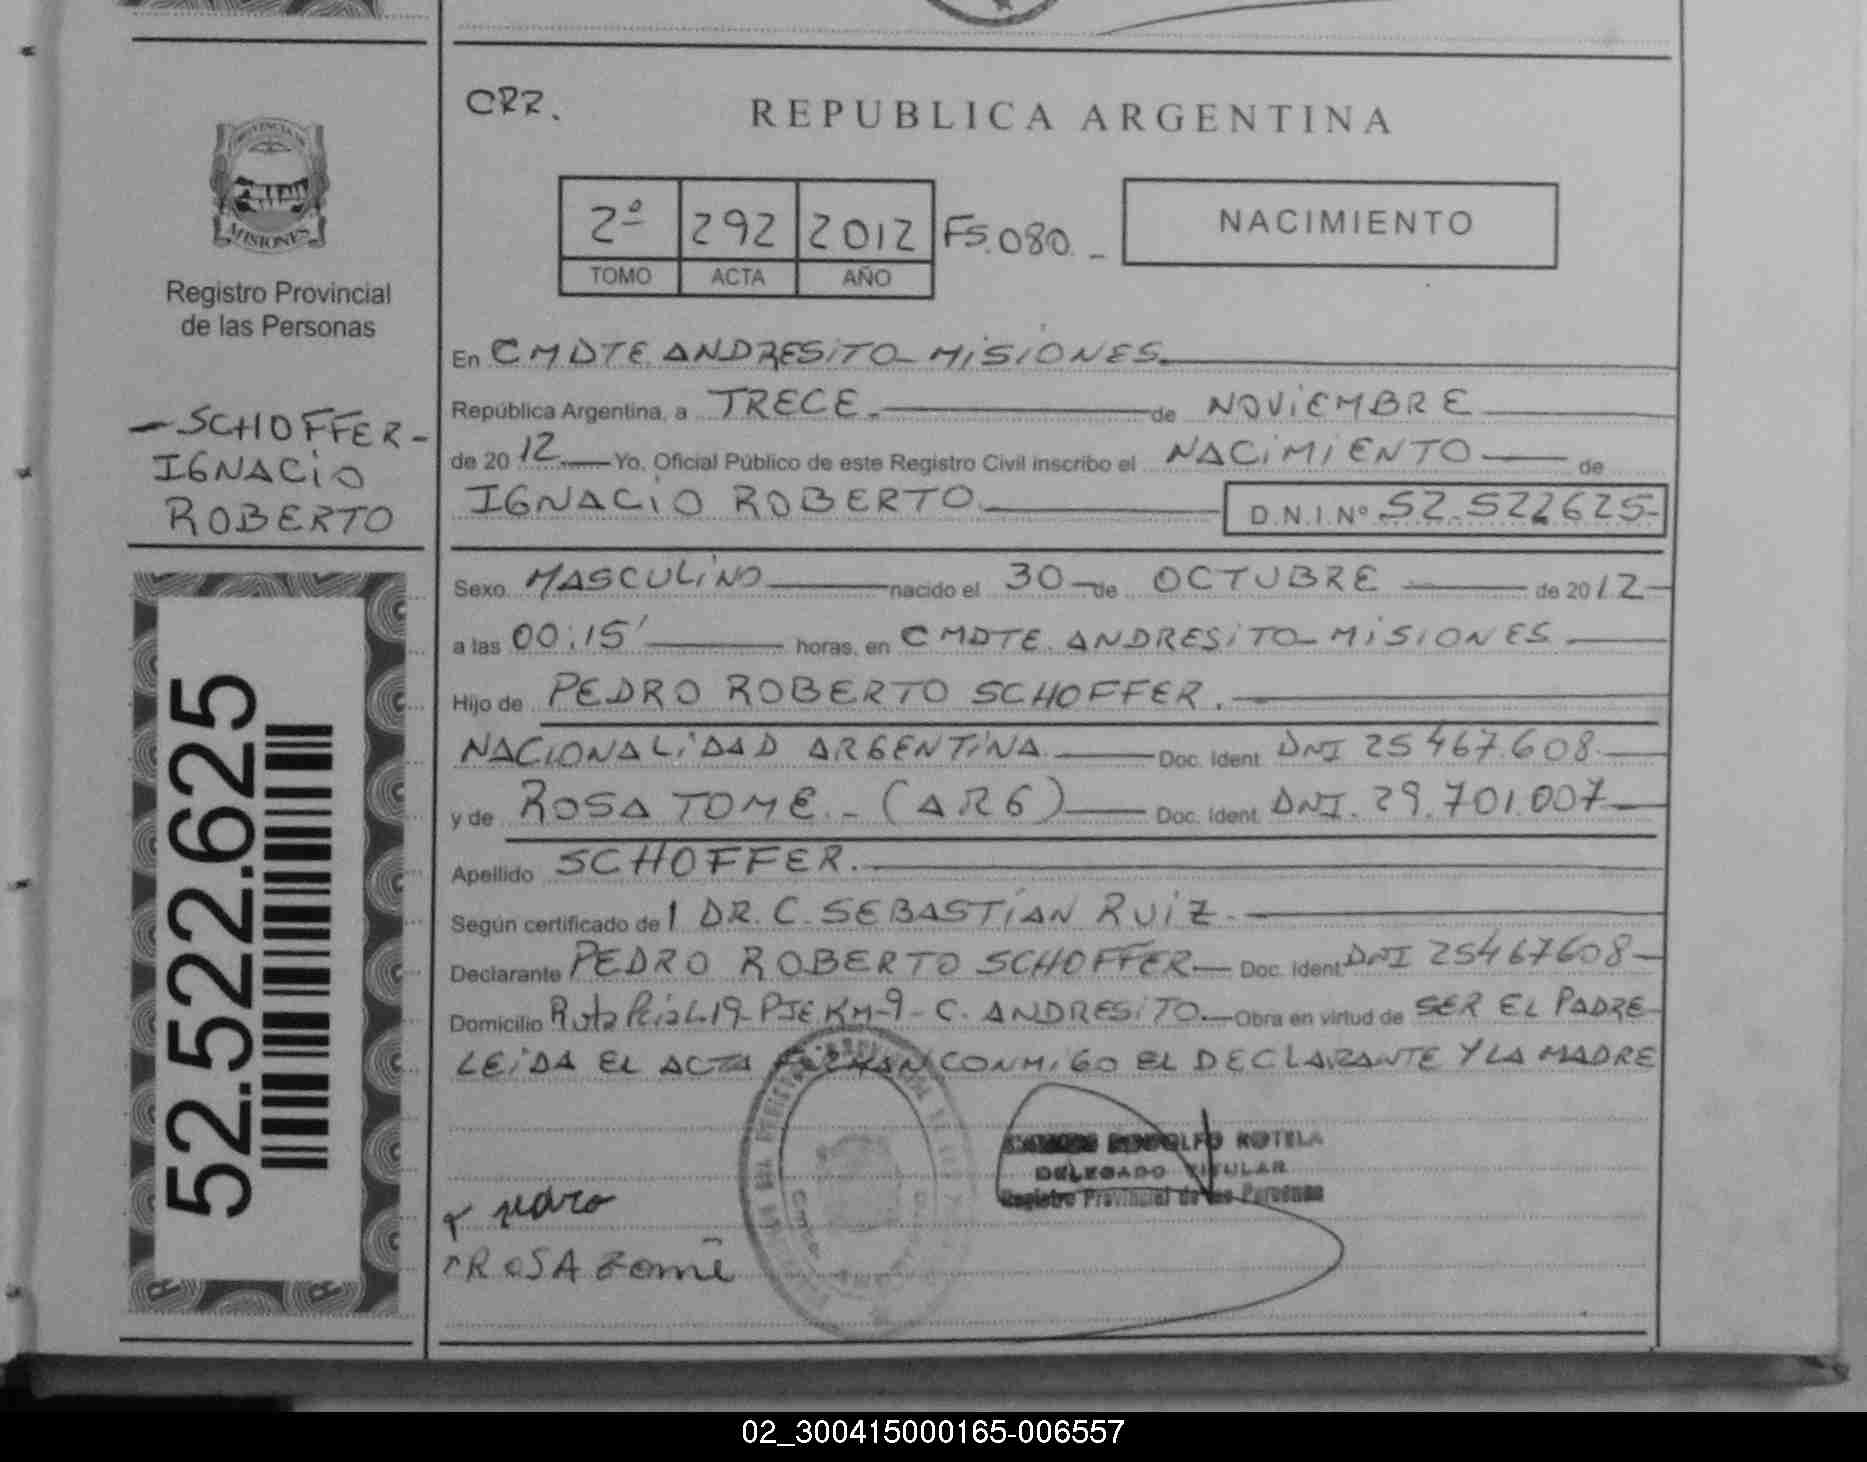 CRR.
REPUBLICA ARGENTINA
PROVINCIA DE
MISIONES
2º 292 2012 FS.080.-
TOMO ACTA AÑO
NACIMIENTO
Registro Provincial
de las Personas
- SCHOFFER -
IGNACIO
ROBERTO
52.522.625
En CMDTE ANDRESITO - MISIONES.
República Argentina, a TRECE.- de NOVIEMBRE
de 20 12 Yo, Oficial Público de este Registro Civil inscribo el NACIMIENTO de
IGNACIO ROBERTO D.N.I.Nº 52.522625-
Sexo MASCULINO nacido el 30 de OCTUBRE de 2012
a las 00:15' horas, en CMDTE. ANDRESITO - MISIONES
Hijo de PEDRO ROBERTO SCHOFFER.
NACIONALIDAD ARGENTINA Doc. Ident. DNI 25467.608.
y de ROSA TOME.- (ARG) Doc. Ident. DNI. 29.701.007
Apellido SCHOFFER.
Según certificado de l DR. C. SEBASTIAN RUIZ.
Declarante PEDRO ROBERTO SCHOFFER Doc. Ident. DNI 25467608
Domicilio Ruta 19 PJE KM-9 - C. ANDRESITO. Obra en virtud de SER EL PADRE
LEIDA EL ACTA FIRMAN CONMIGO EL DECLARANTE Y LA MADRE
RODOLFO ROTELA
DELEGADO TITULAR
Registro Provincial de las Personas
ROSA tomé
02_300415000165-006557